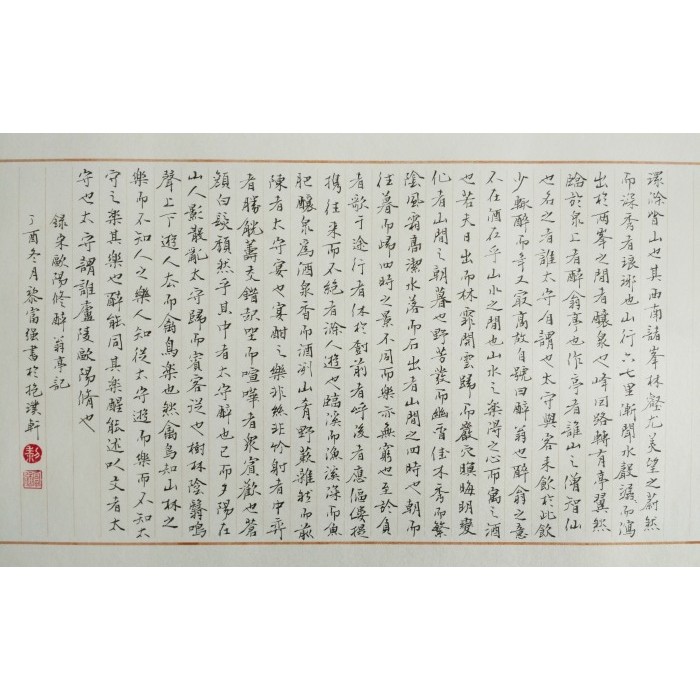 環滁皆山也其西南諸峯林壑尤美望之蔚然
而深秀者琅琊也山行六七里漸聞水聲潺而瀉
出於兩峯之間者釀泉也峰回路轉有亭翼然
臨於泉上者醉翁亭也作亭者誰山之僧智仙
也名之者誰太守自謂也太守與客来飲於此飲
少輒醉而年又最高故自號曰醉翁也醉翁之意
不在酒在乎山水之間也山水之樂得之心而寓之酒
也若夫日出而林霏開雲歸而巖穴暝晦明變
化者山間之朝暮也野芳發而幽香佳木秀而繁
陰風霜高潔水落而石出者山間之四時也朝而
往暮而歸四時之景不同而樂亦無窮也至於負
者歌于途行者休於樹前者呼後者應傴僂提
携往来而不絕者滁人遊也臨溪而漁溪深而魚
肥釀泉為酒泉香而酒洌山肴野蔌雜然而前
陳者太守宴也宴酣之樂非絲非竹射者中弈
者勝觥籌交錯起坐而喧嘩者衆賓歡也蒼
顏白髮頹然乎其中者太守醉也已而夕陽在
山人影散亂太守歸而賓客從也樹林陰翳鳴
聲上下遊人去而禽鳥樂也然禽鳥知山林之
樂而不知人之樂人知從太守遊而樂而不知太
守之樂其樂也醉能同其樂醒能述以文者太
守也太守謂誰廬陵歐陽脩也
録宋歐陽修醉翁亭記
丁酉冬月黎富强書於抱濮軒